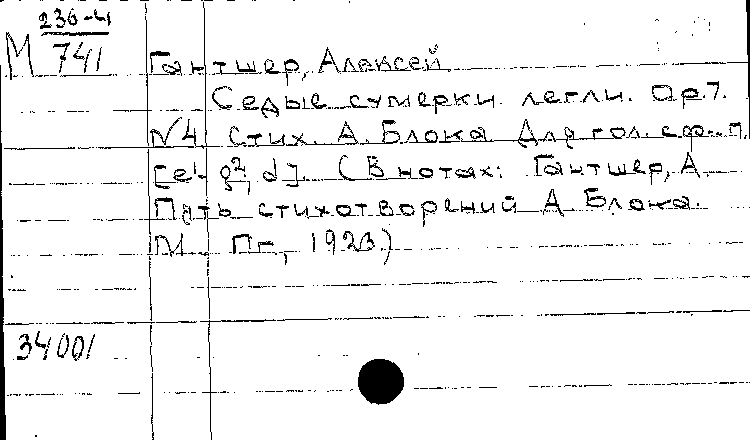 236-41
М 741
Гантшер, Алексей.
Седые сумерки легли. Ор.7.
N4. Стих. А. Блока. Для гол. с ф.-п.
[e¹- g², d]. (В нотах: Гантшер, А.
Пять стихотворений А. Блока.
М. Пг., 1923.)
34001